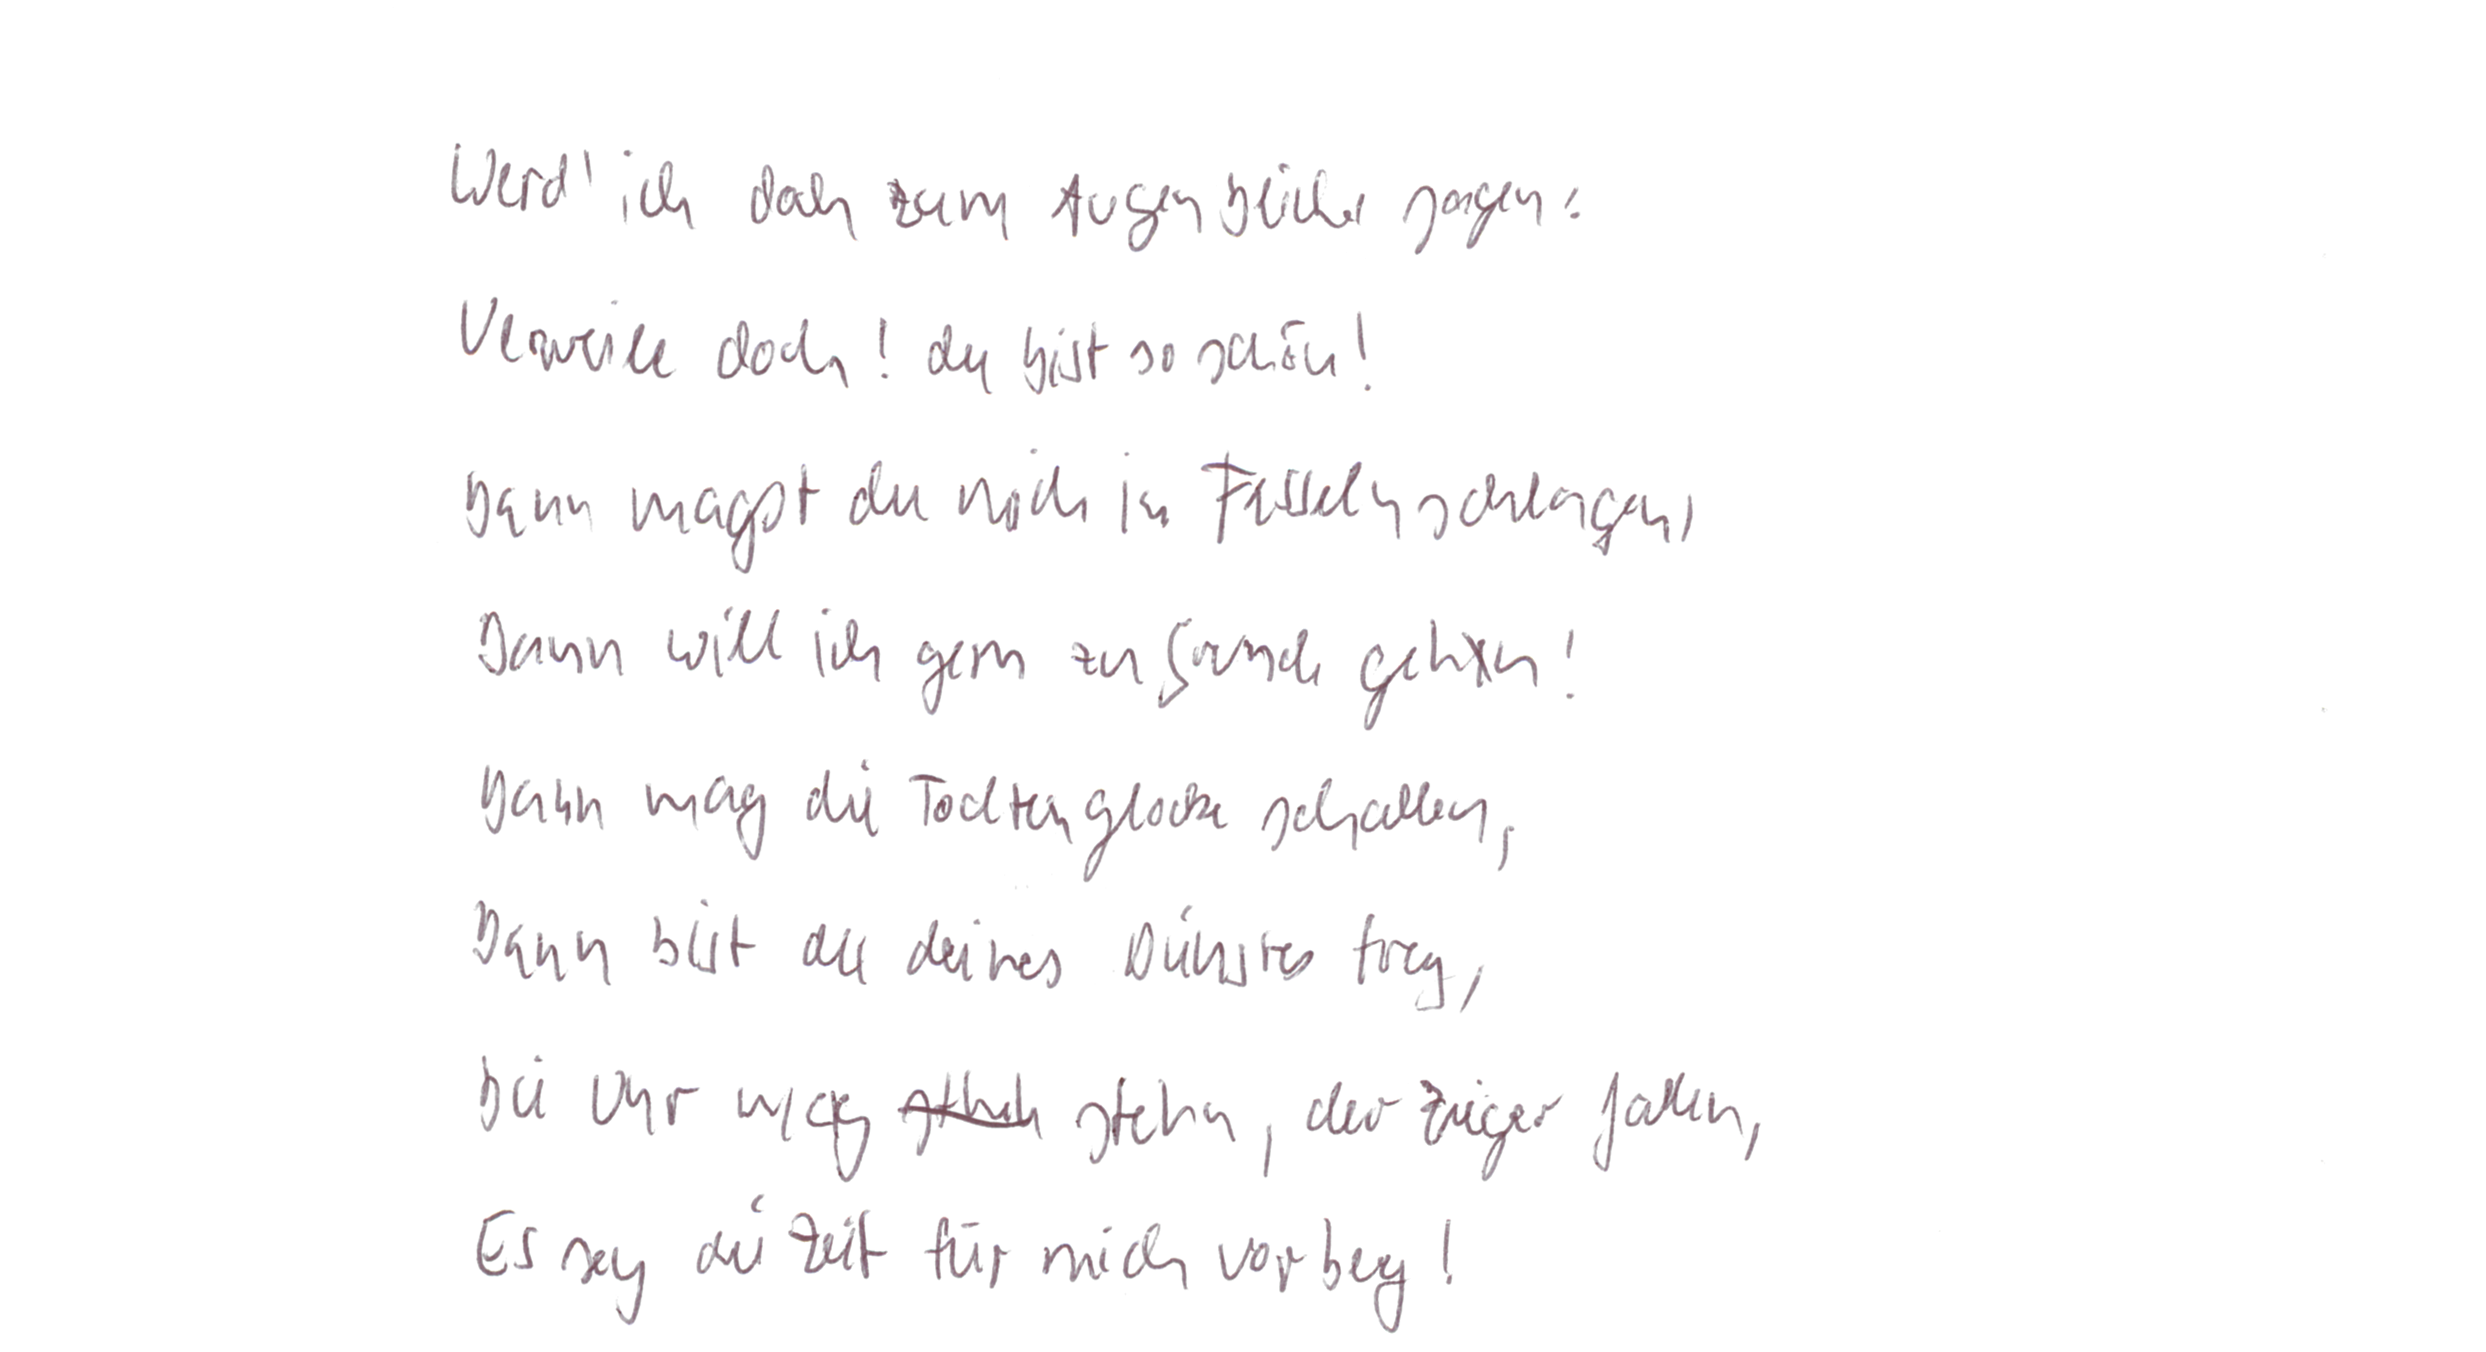 Werd' ich doch zum Augenblicke sagen:
Verweile doch! du bist so schön!
Dann magst du mich in Fesseln schlagen,
Dann will ich gern zu Grunde gehn!
Dann mag die Todtenglocke schallen,
Dann bist du deines Dienstes frey,
Die Uhr mag stehn, der Zeiger fallen,
Es sey die Zeit für mich vorbey!